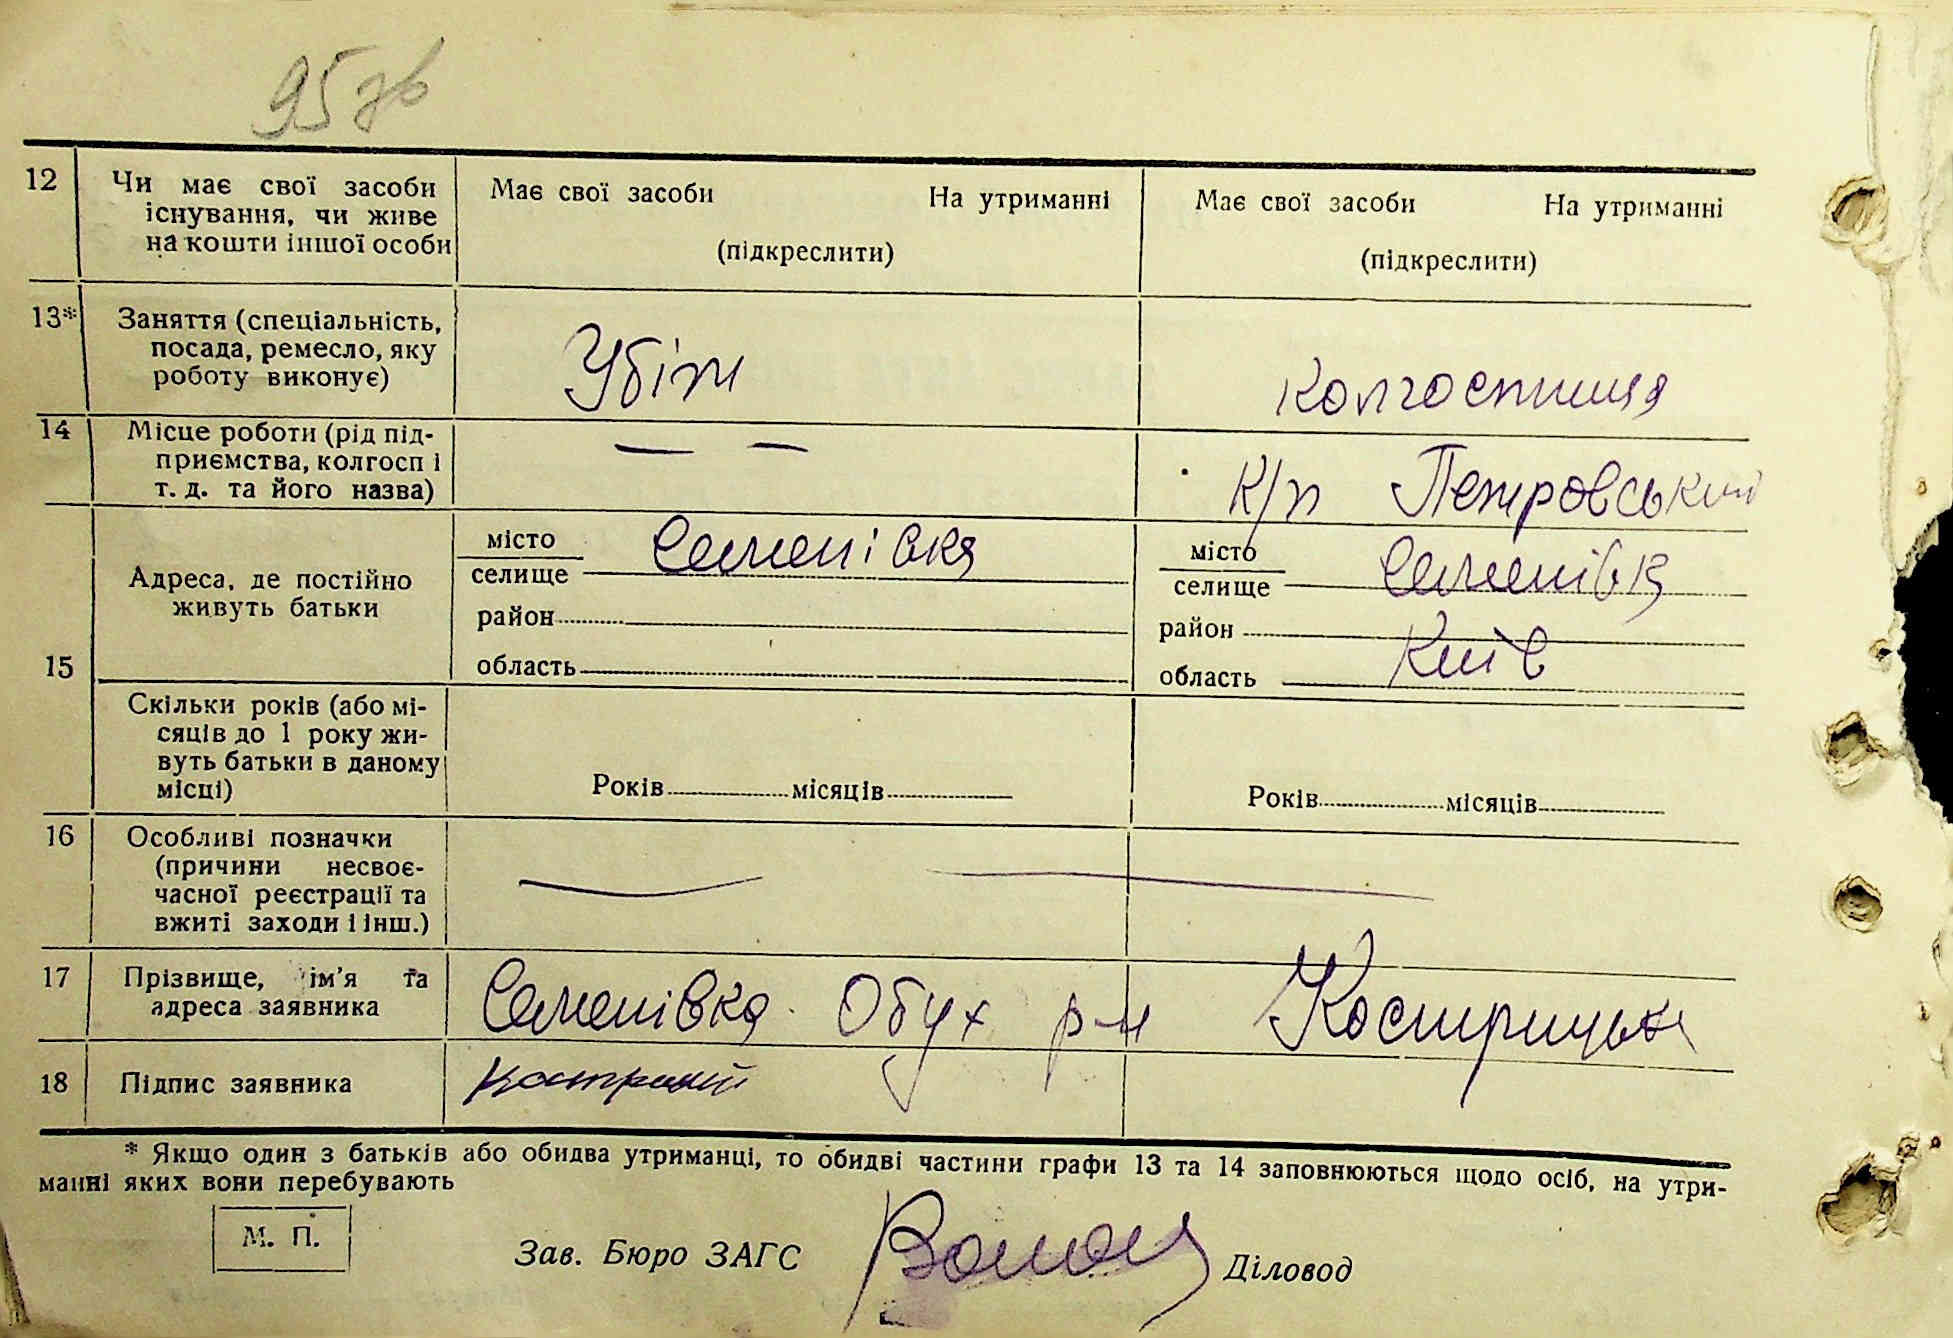 95 зв
12 Чи має свої засоби існування, чи живе на кошти іншої особи
Має свої засоби На утриманні
(підкреслити)
Має свої засоби На утриманні
(підкреслити)
13* Заняття (спеціальність, посада, ремесло, яку роботу виконує)
Убіт
колгоспниця
14 Місце роботи (рід підприємства, колгосп і т. д. та його назва)
— —
к/п Петровський
15 Адреса, де постійно живуть батьки
місто
селище Семенівка
район
область
місто
селище Семенівка
район
область Київ
Скільки років (або місяців до 1 року живуть батьки в даному місці)
Років місяців
Років місяців
16 Особливі позначки (причини несвоєчасної реєстрації та вжиті заходи і інш.)
17 Прізвище, ім'я та адреса заявника
Семенівка Обух р-н
18 Підпис заявника
* Якщо один з батьків або обидва утриманці, то обидві частини графи 13 та 14 заповнюються щодо осіб, на утри-
манні яких вони перебувають
М. П.
Зав. Бюро ЗАГС
Діловод